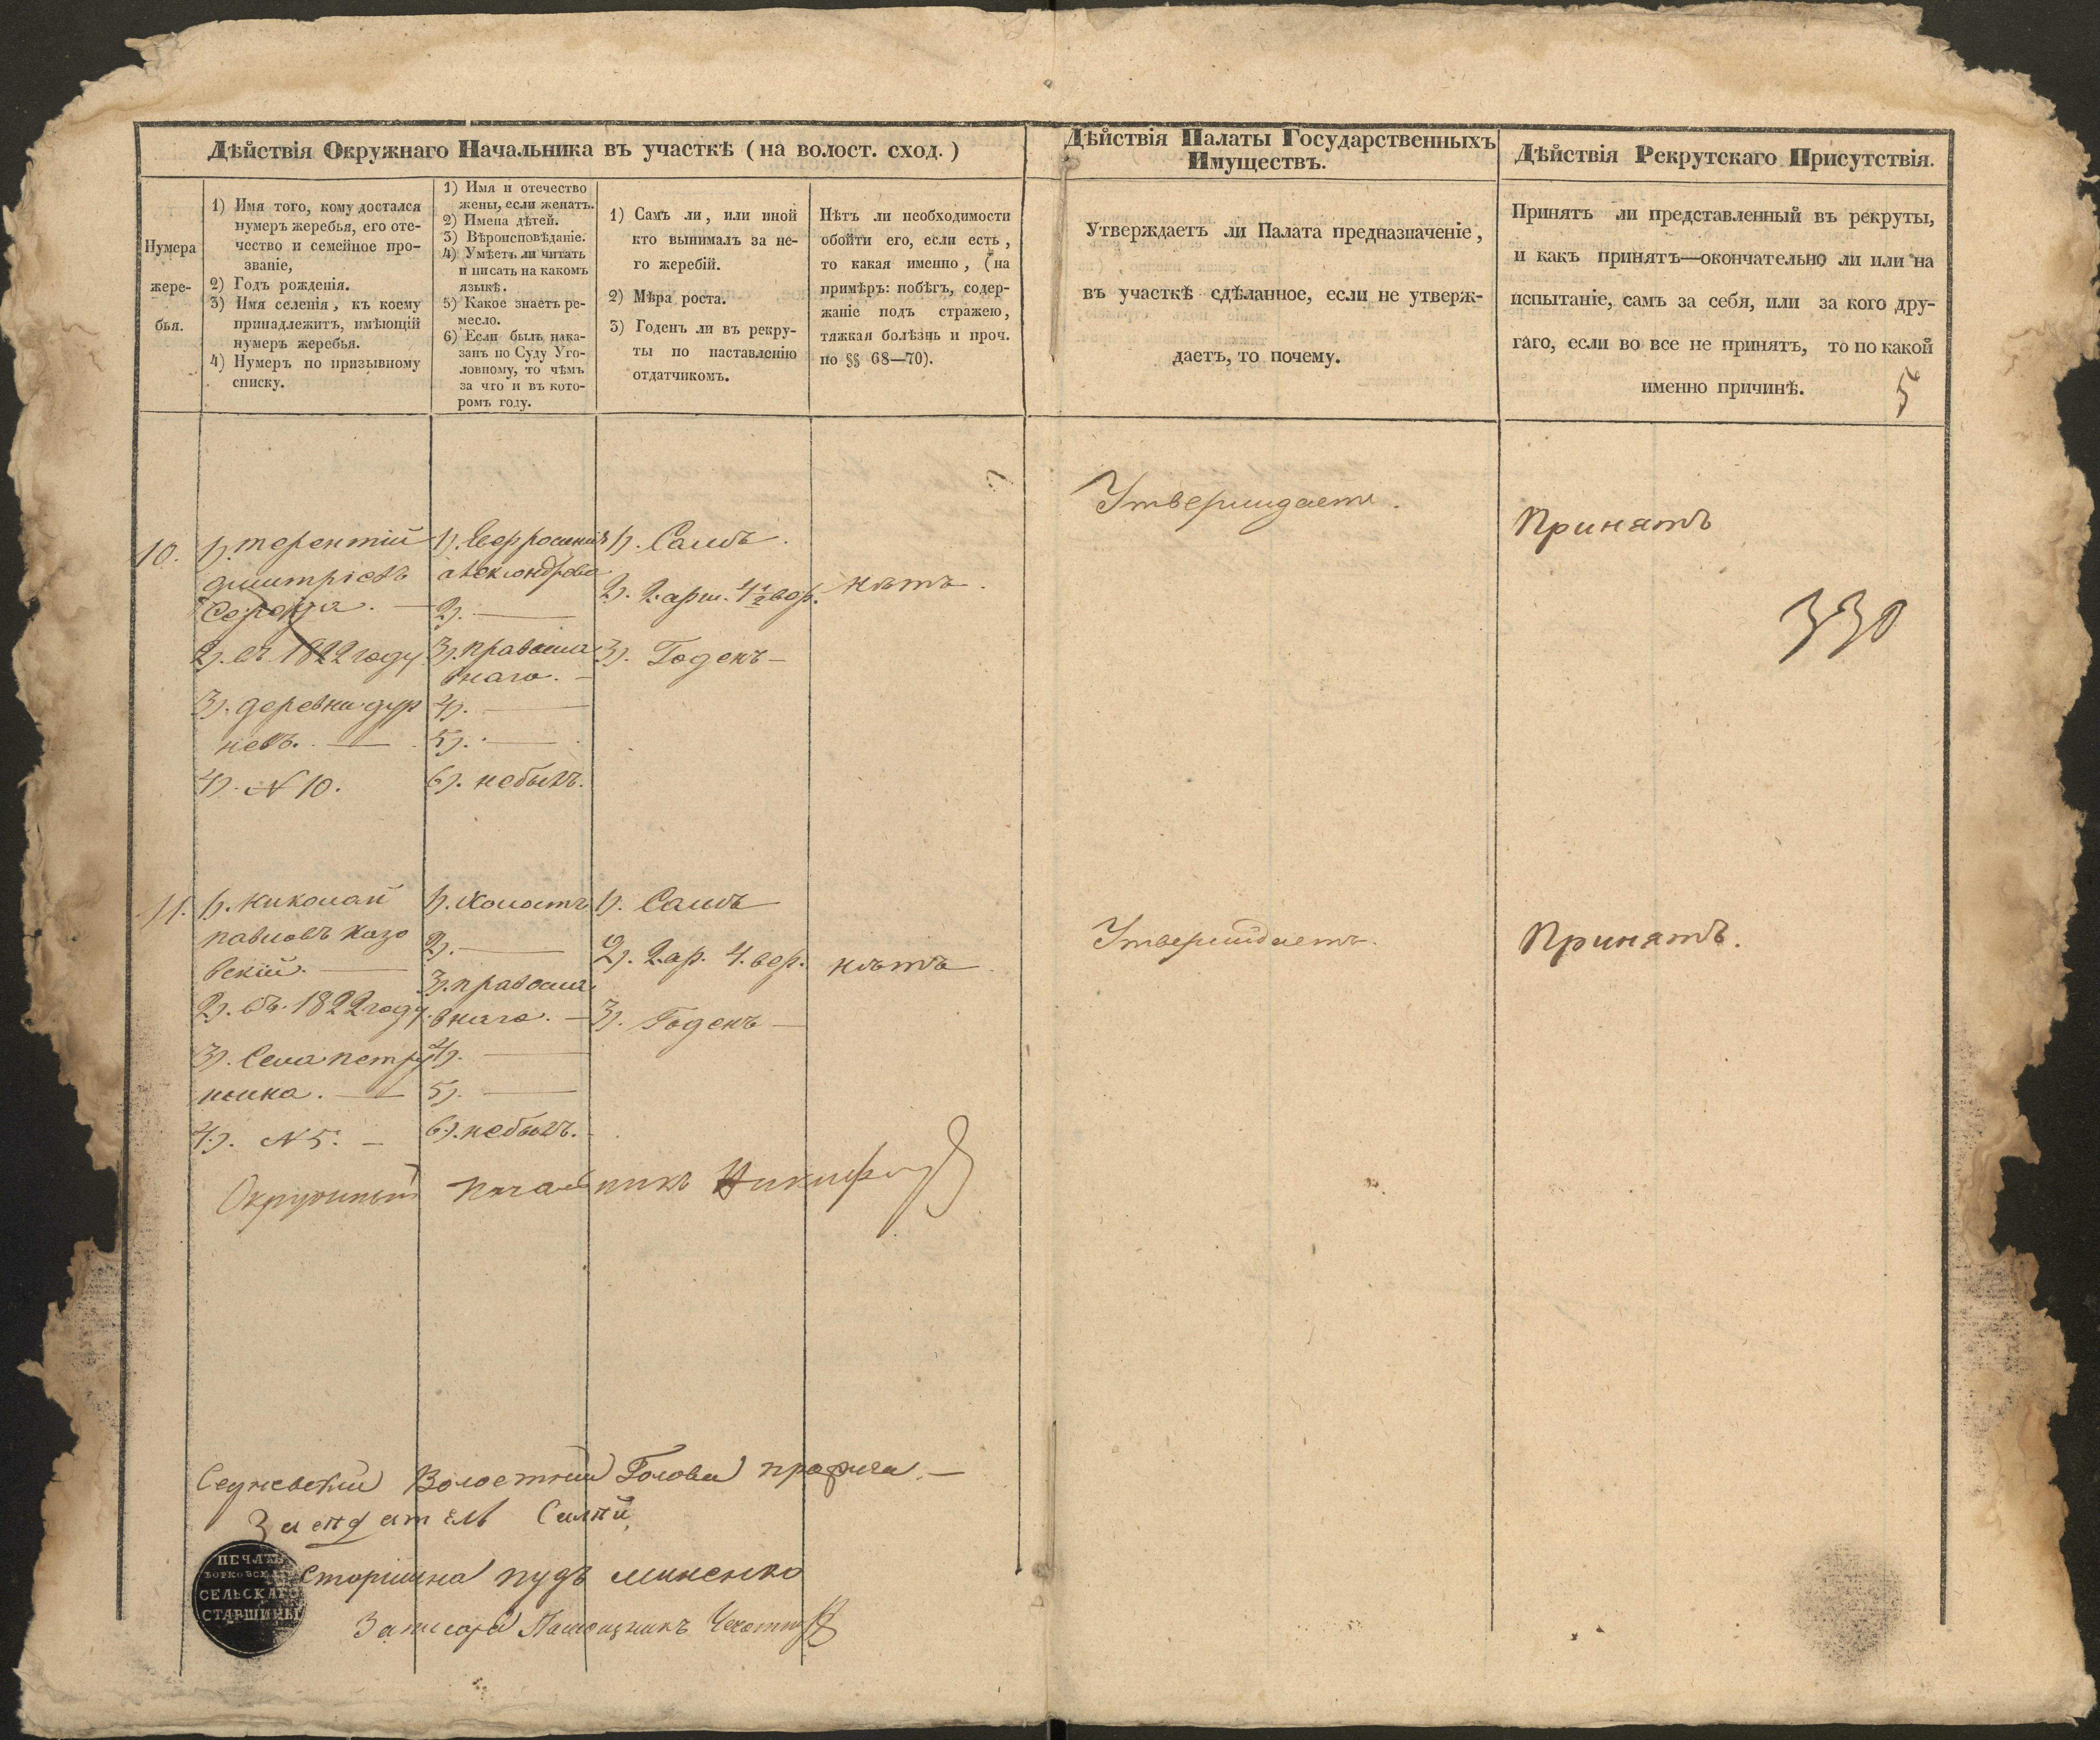 Дѣйствія Окружнаго Начальника въ участкѣ (на волост. сход.)
Дѣйствія Палаты Государственныхъ
Имуществъ.
Дѣйствія Рекрутскаго Присутствія.
Нумера
жере-
бья.
1) Имя того, кому достался
нумеръ жеребья, его оте-
чество и семейное про-
званіе,
2) Годъ рожденія.
3) Имя селенія, къ коему
принадлежитъ, имѣющій
нумеръ жеребья.
4) Нумеръ по призывному
списку.
1) Имя и отечество
жены, если женатъ.
2) Имена дѣтей.
3) Вѣроисповѣданіе.
4) Умѣетъ ли читать
и писать на какомъ
языкѣ.
5) Какое знаетъ ре-
месло.
6) Если былъ нака-
занъ по Суду Уго-
ловному, то чѣмъ
за что и въ кото-
ромъ году.
1) Самъ ли, или иной
кто вынималъ за не-
го жеребій.
2) Мѣра роста.
3) Годенъ ли въ рекру-
ты по наставленію
отдатчикомъ.
Нѣтъ ли необходимости
обойти его, если есть,
то какая именно, (на
примѣръ: побѣгъ, содер-
жаніе подъ стражею,
тяжкая болѣзнь и проч.
по §§ 68—70).
Утверждаетъ ли Палата предназначеніе,
въ участкѣ сдѣланное, если не утверж-
даетъ, то почему.
Принятъ ли представленный въ рекруты,
и какъ принятъ—окончательно ли или на
испытаніе, самъ за себя, или за кого дру-
гаго, если во все не принятъ, то по какой
именно причинѣ.
5
10.
1). терентій
дмитріевъ
Середа. —
2). въ 1822 году
3). деревни дур
невъ. —
4). N 10.
1). Евфросинія
александрова
2). —
3). правосла
внаго. —
4). —
5). —
6). небылъ.
1). Самъ.
2). 2. арш. 4 1/2 вер.
3). Годенъ —
нѣтъ.
Утверждаетъ.
Принятъ
330
11.
1). николай
павловъ казо
вскій. —
2). въ 1822 году
3). Села петру
шика. —
4). N 5. —
1). Холостъ
2). —
3). правосла
внаго. —
4). —
5). —
6). небылъ.
1). Самъ
2). 2. ар. 4. вер.
3). Годенъ —
нѣтъ
Утверждаетъ.
Принятъ.
Окружный Начальникъ
Седневский Волостний Голова —
Старшина пудъ миненко
Помощникъ
ПЕЧАТЬ
БОРКОВСКАГО
СЕЛЬСКАГО
СТАРШИНЫ